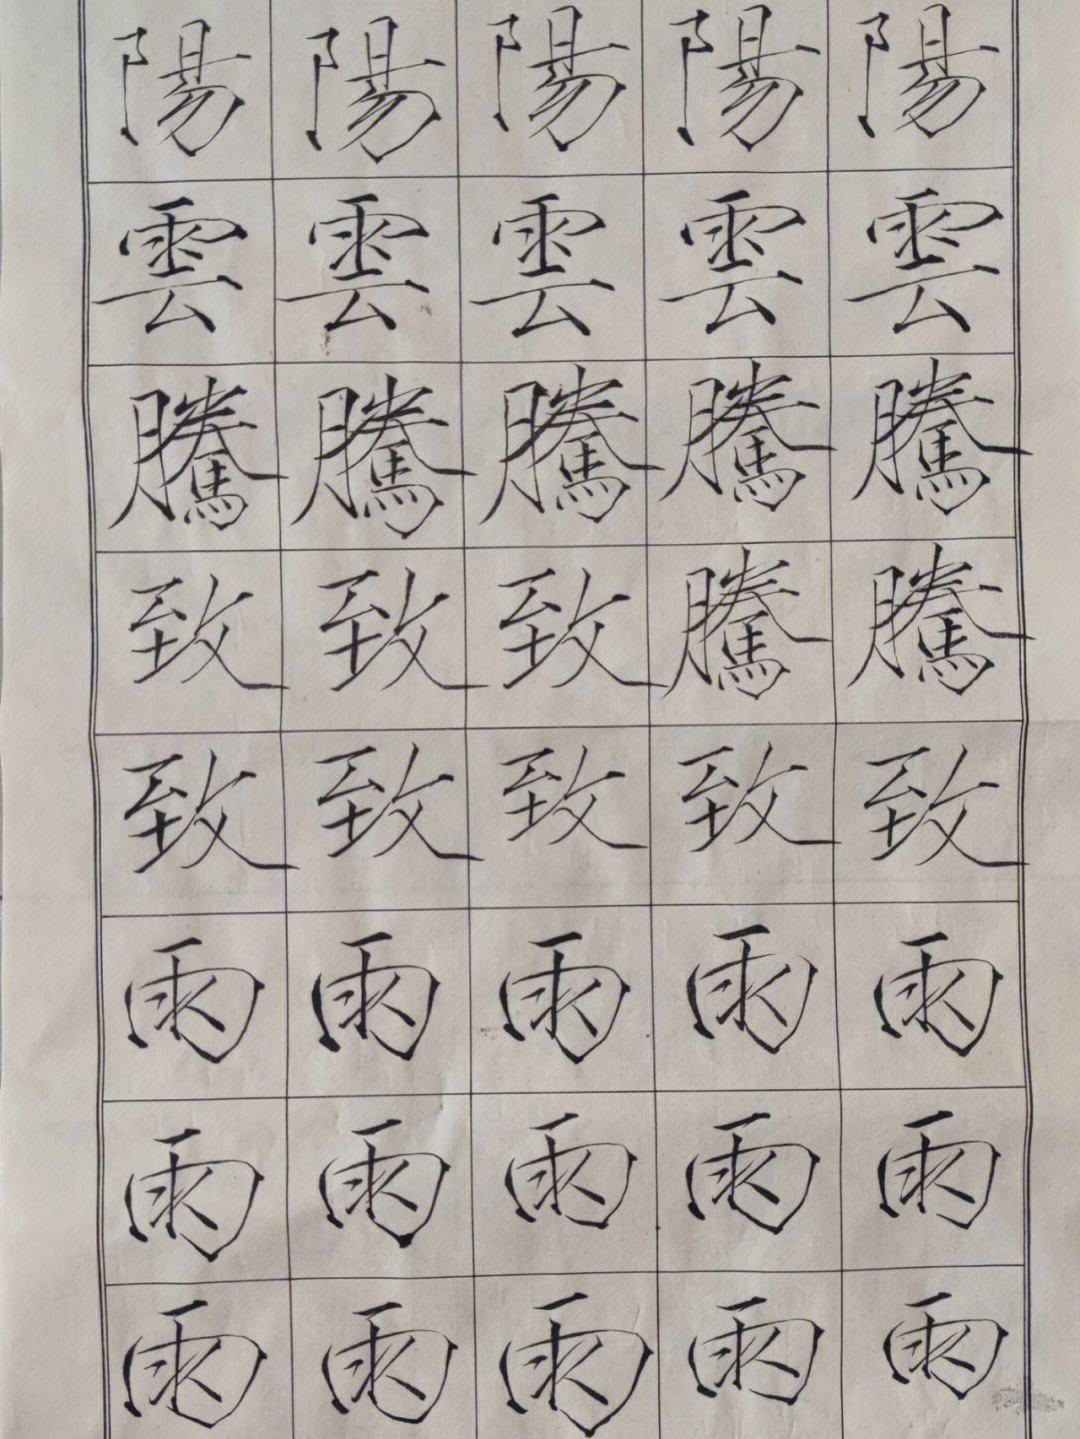 陽陽陽陽陽
雲雲雲雲雲
騰騰騰騰騰
致致致騰騰
致致致致致
雨雨雨雨雨
雨雨雨雨雨
雨雨雨雨雨